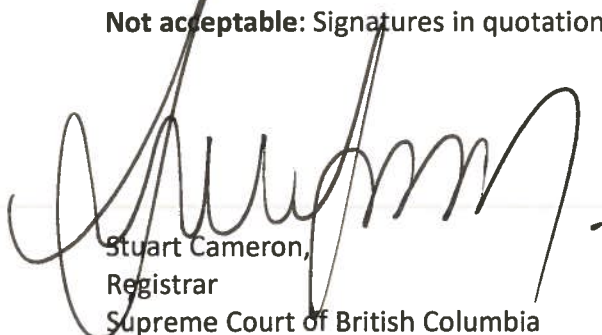 Not acceptable: Signatures in quotation
Stuart Cameron,
Registrar
Supreme Court of British Columbia